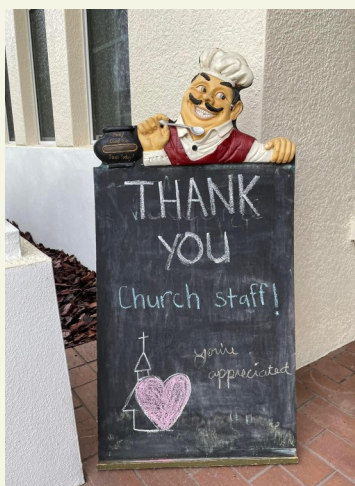 THANK
YOU
Church staff!
you're
appreciated